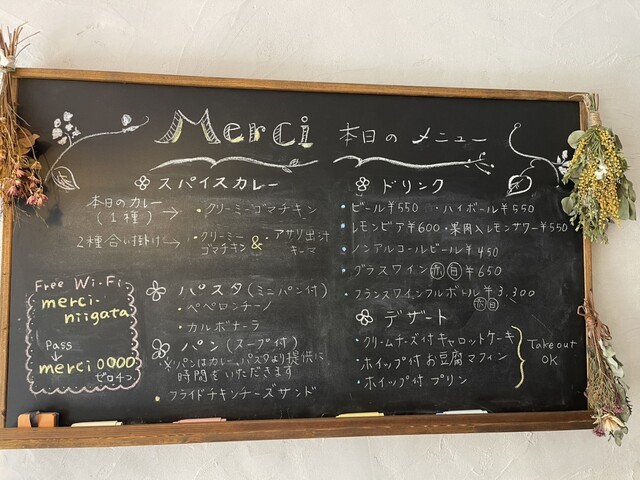 Merci 本日の メニュー
スパイスカレー
本日のカレー
(1種) → ・クリーミーゴマチキン
2種合い掛け → ・クリーミーゴマチキン & ・アサリ出汁キーマ
パスタ(ミニパン付)
・ペペロンチーノ
・カルボナーラ
パン(スープ付)
※パンはカレー、パスタより提供に
時間をいただきます
・フライドチキンチーズサンド
Free Wi-Fi
merci-
niigata
Pass
↓
merci0000
ゼロ4つ
ドリンク
・ビール¥550 ・ハイボール¥550
・レモンビア¥600 ・果肉入レモンサワー¥550
・ノンアルコールビール¥450
・グラスワイン 赤 白 ¥650
・フランスワインフルボトル¥3,300
赤 白
デザート
・クリームチーズ付キャロットケーキ
・ホイップ付お豆腐マフィン
・ホイップ付プリン
Takeout
OK